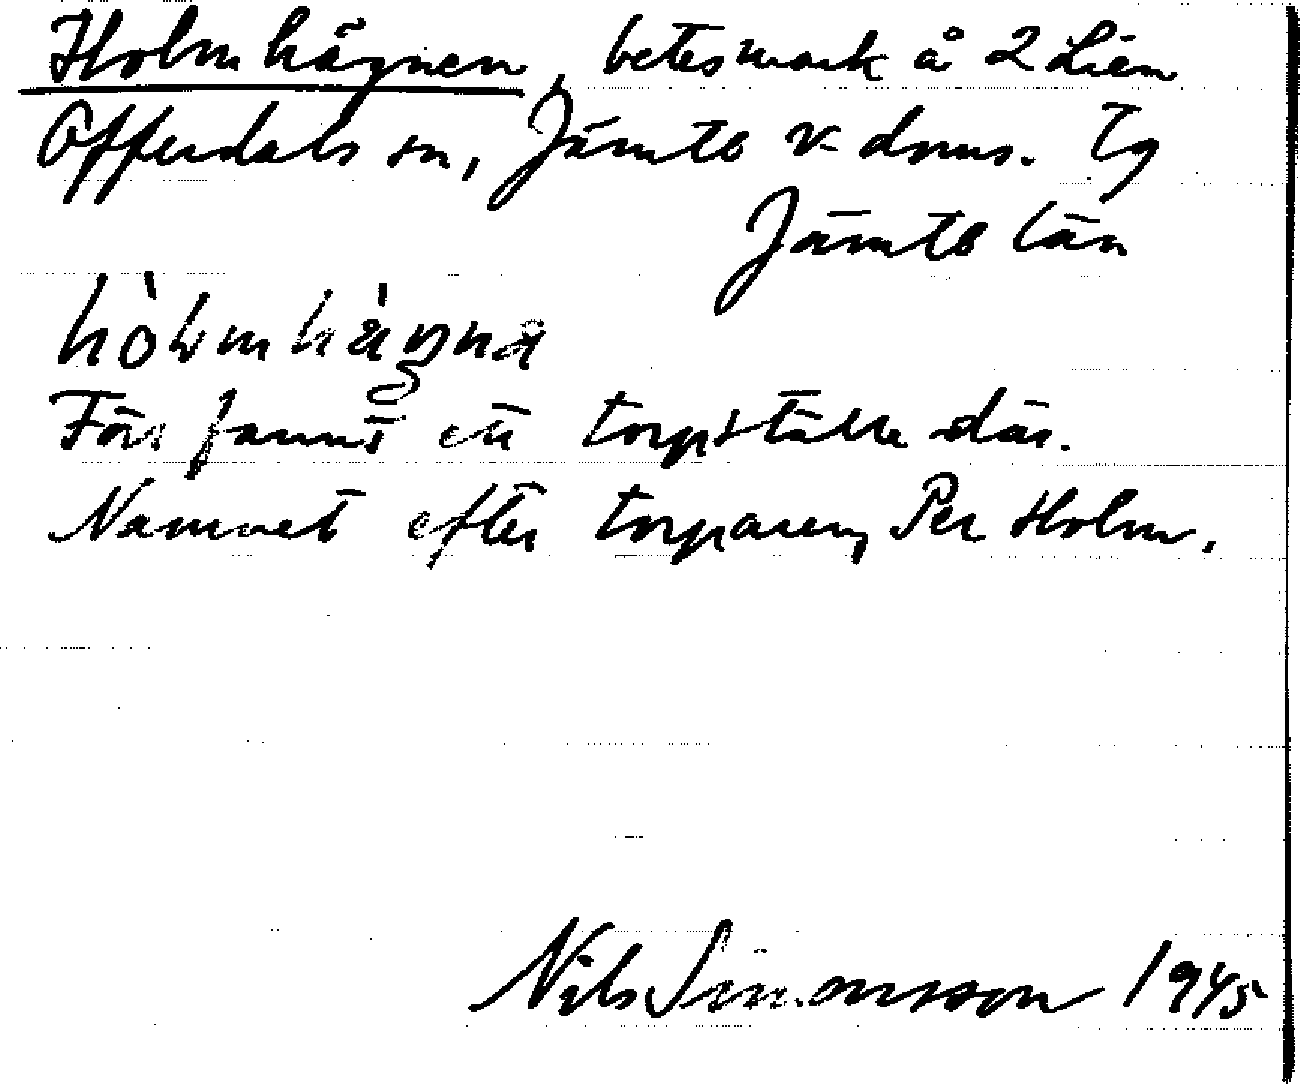 Holmhägnen, betesmark å 2 Lien
Offerdals sn, Jämtl v. doms. Tg
Jämtl län
hòlmhàgnа
Förr fanns ett torpställe där.
Namnet efter torparen, Per Holm.
Nils Simonsson 1945